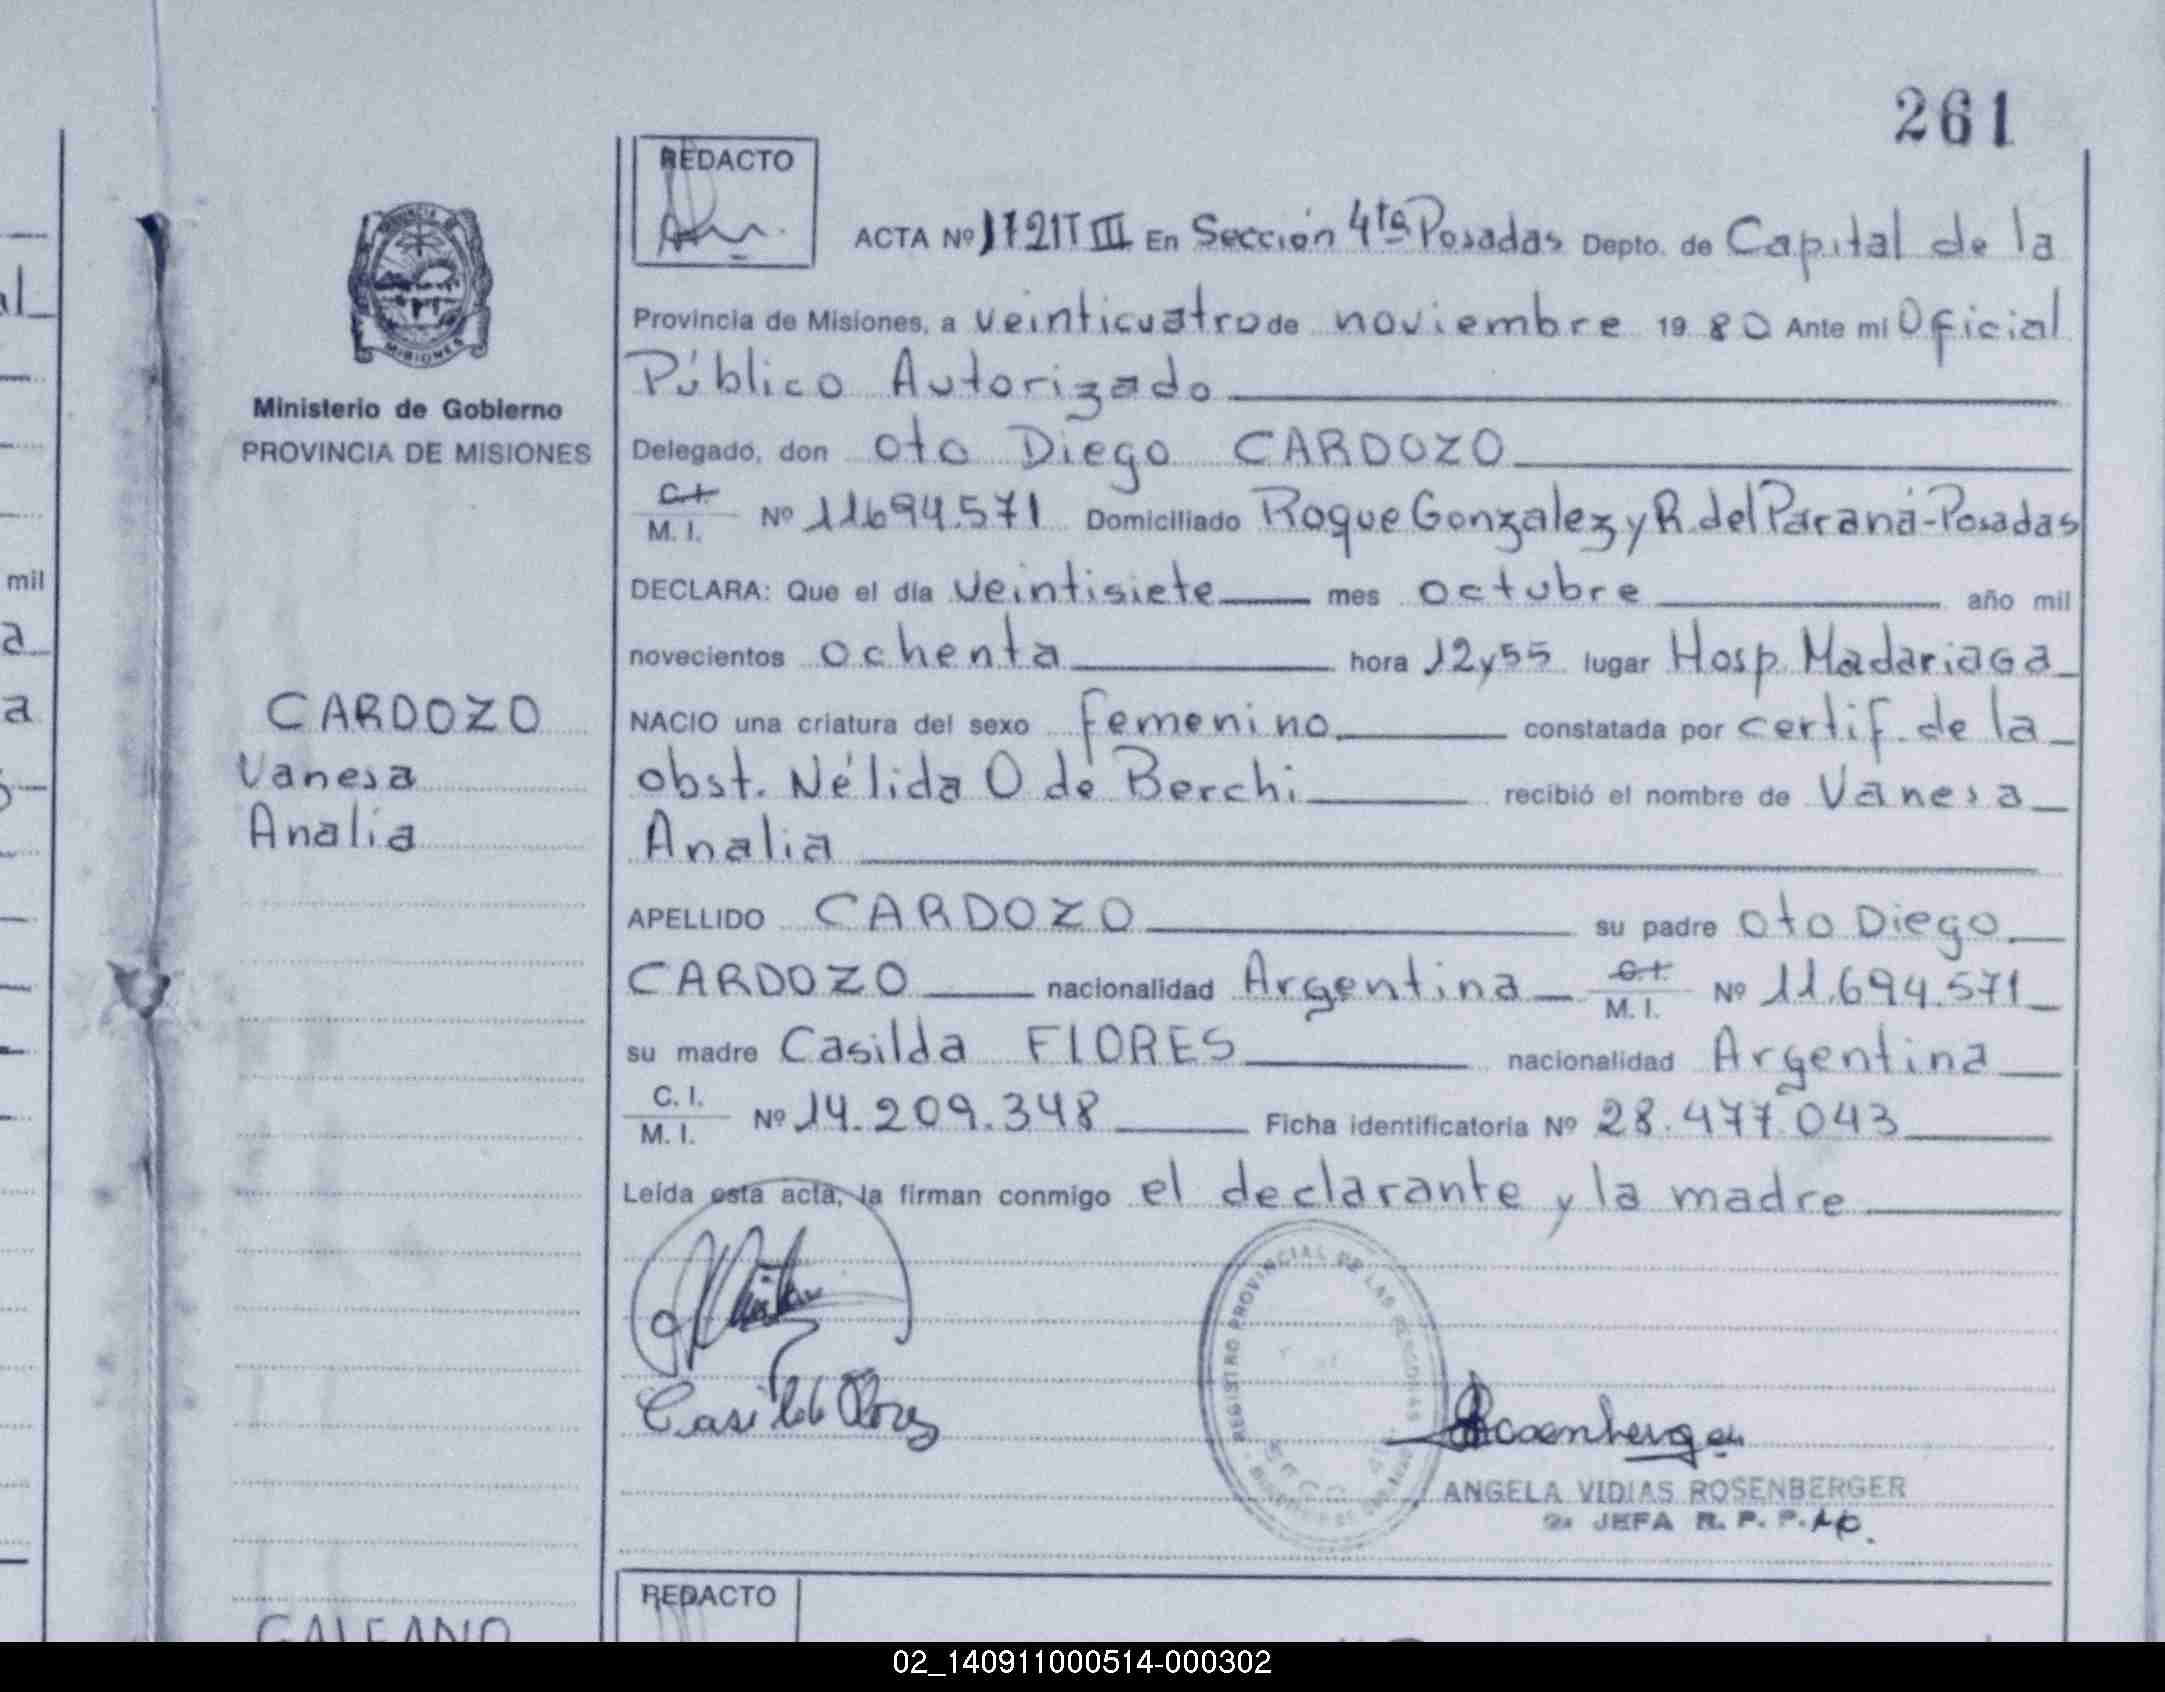 261
REDACTO
ACTA Nº 1721 T III En Sección 4ta Posadas Depto. de Capital de la
Provincia de Misiones, a veinticuatro de noviembre 19 80 Ante mi Oficial
Público Autorizado
Delegado, don Oto Diego CARDOZO
C.I.
M. I. Nº 11694.571 Domiciliado Roque Gonzalez y R. del Paraná-Posadas
DECLARA: Que el día veintisiete mes octubre año mil
novecientos ochenta hora 12y55 lugar Hosp. Madariaga
NACIO una criatura del sexo femenino constatada por certif. de la
obst. Nélida O de Berchi recibió el nombre de Vanesa
Analia
APELLIDO CARDOZO su padre Oto Diego
CARDOZO nacionalidad Argentina C.I.
M. I. Nº 11.694.571
su madre Casilda FLORES nacionalidad Argentina
C. I.
M. I. Nº 14.209.348 Ficha identificatoria Nº 28.477.043
Leída esta acta, la firman conmigo el declarante y la madre
Casilda Flores
Rosenberger
REGISTRO PROVINCIAL DE LAS PERSONAS
ANGELA VIDIAS ROSENBERGER
2a JEFA R. P. P.
REDACTO
PROVINCIA DE
MISIONES
Ministerio de Gobierno
PROVINCIA DE MISIONES
CARDOZO
Vanesa
Analia
GALEANO
mil
a
a
02_140911000514-000302